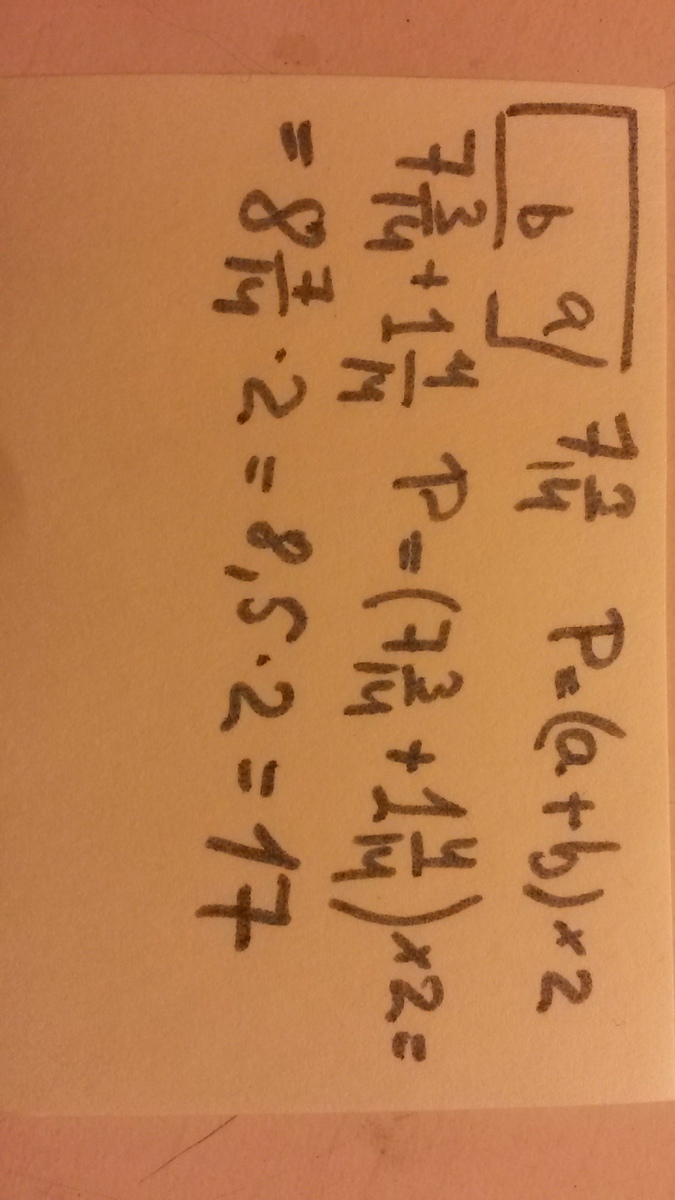 a 7 3/14 P=(a+b)×2
b
7 3/14 + 1 4/14 P=(7 3/14 + 1 4/14)×2=
= 8 7/14 · 2 = 8,5 · 2 = 17